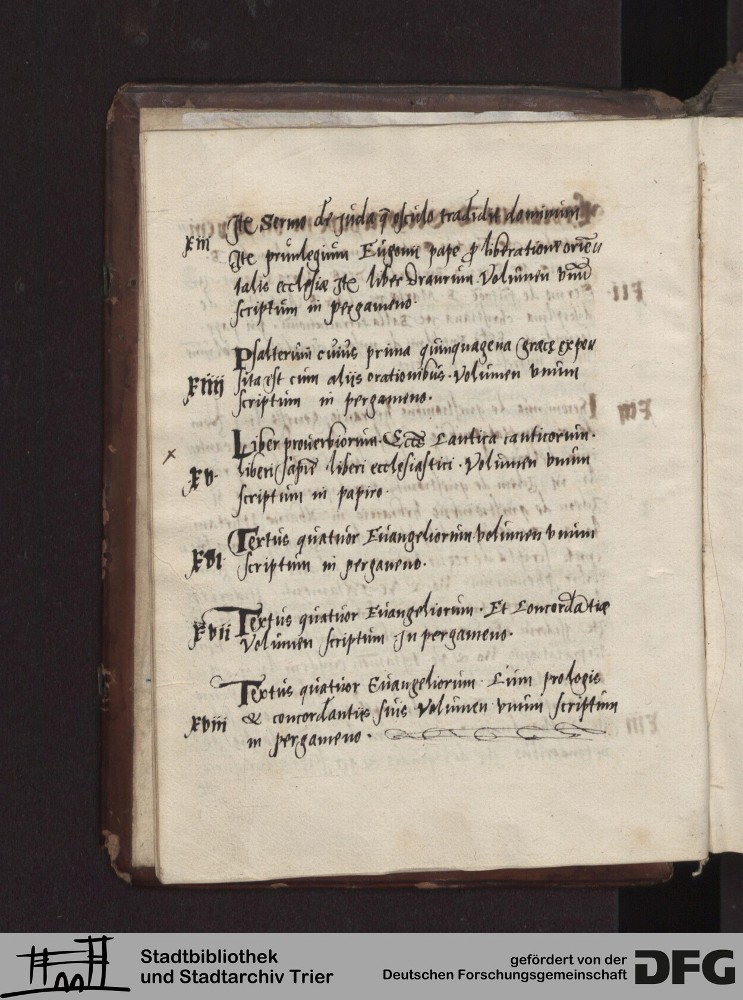 Itē Sermo de juda q̄ osculo tradidit dominum
xiii
Itē priuilegium Eugenii pape ꝓ liberatione oriēn
talis ecclesiæ Itē liber Draurum Volumen vnū
scriptum in pergameno
Psalterium cuius prima quinquagena Grace expo
xiiii
sita est cum aliis orationibus. Volumen vnum
scriptum in pergameno.
Liber prouerbiorum. Ecc̄s Cantica canticorum.
xv
liberi Sapiē liberi ecclesiastici. Volumen vnum
scriptum in papiro.
Textus quatuor Euangeliorum volumen vnum
xvi
scriptum in pergameno.
Textus quatuor Euangeliorum. Et Concordātiæ
xvii
Volumen scriptum In pergameno.
Textus quatuor Euangeliorum. Cum prologis
xviii
& concordantiis suis Volumen vnum scriptum
in pergameno.
Stadtbibliothek
und Stadtarchiv Trier
gefördert von der
Deutschen Forschungsgemeinschaft
DFG